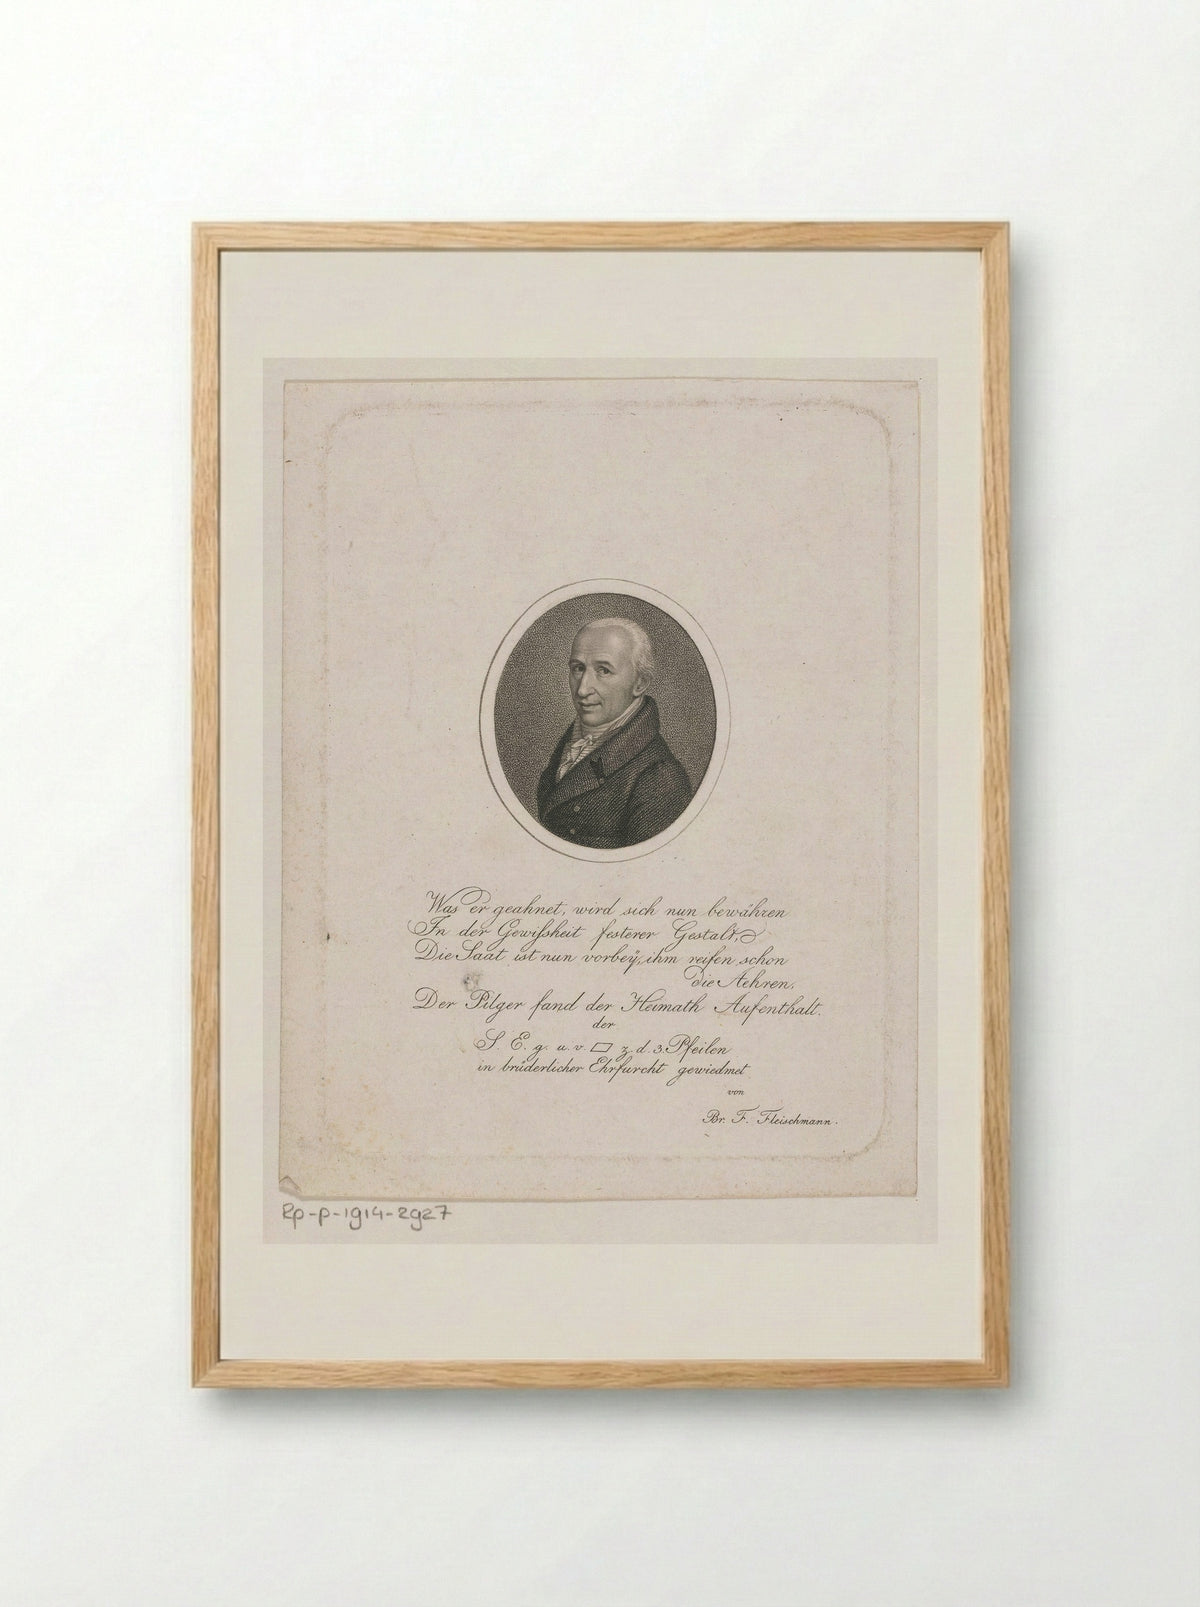 Was er geahnet, wird sich nun bewähren
In der Gewißheit festerer Gestalt,
Die Saat ist nun vorbeÿ, ihm reifen schon
die Aehren,
Der Pilger fand der Heimath Aufenthalt.
der
S. E. g. u. v. ▱ z. d. 3. Pfeilen
in brüderlicher Ehrfurcht gewiedmet
von
Br. F. Fleischmann.
Rp-p-1914-2927